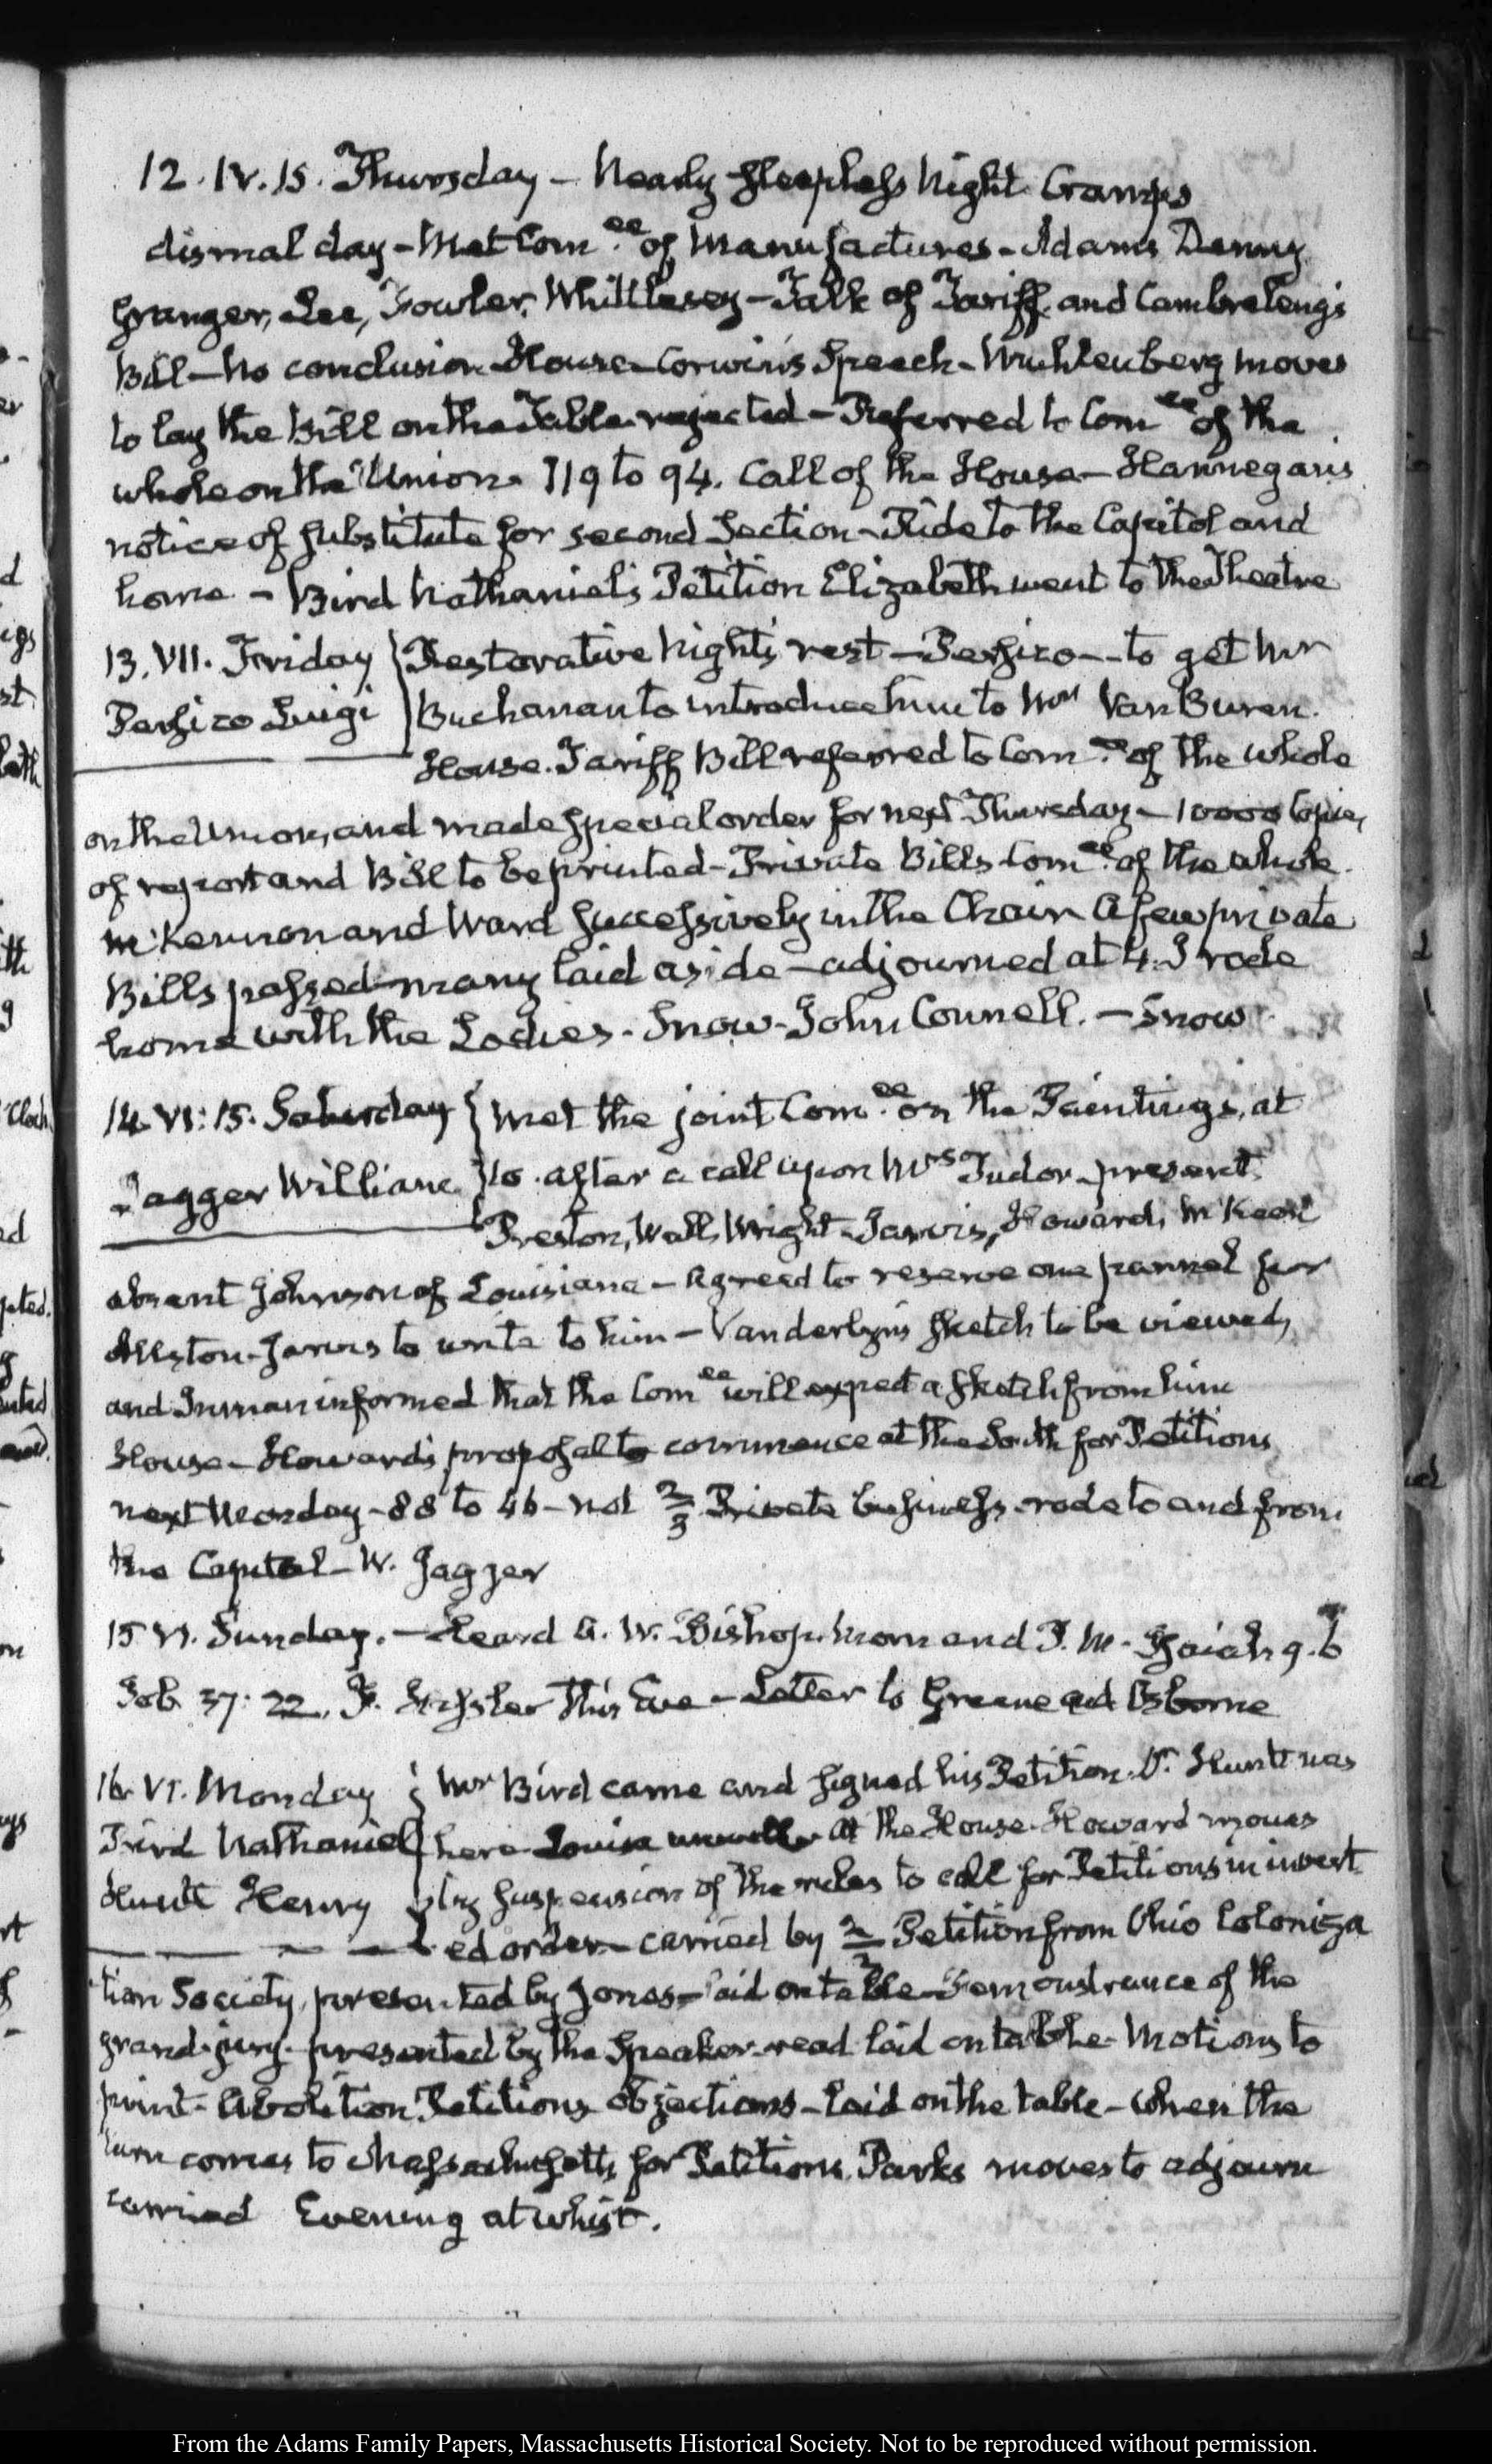 12. IV. 15. Thursday – Nearly sleepless Night. Cramps
dismal day – Met Com.ee of Manufactures – Adams Denny
Granger, Lee, Fowler, Whittlesey – Talk of Tariff and Cambreleng's
Bill – No conclusion. House – Corwin's Speech – Muhlenberg moves
to lay the Bill on the Table – rejected – Referred to Com.ee of the
whole on the Union. 119 to 94. Call of the House – Hannegan's
notice of substitute for second Section – Ride to the Capitol and
home – Bird Nathaniel's Petition Elizabeth went to the Theatre
13. VII. Friday Restorative Night's rest – Persico – to get Mr
Persico Luigi Buchanan to introduce him to Mr Van Buren.
House. Tariff Bill referred to Com.ee of the whole
on the Union, and made special order for next Thursday – 10000 Copies
of report and Bill to be printed – Private Bills Com.ee of the whole.
McKennon and Ward successively in the Chair A few private
Bills passed – many laid aside – adjourned at 4. I rode
home with the Ladies – Snow – John Connell. – Snow
14. VI: 15. Saturday Met the joint Com.ee on the Paintings, at
Jagger William 10. after a call upon Mrs Tudor – present
Preston, Wall, Wright – Jarvis, Howard, McKeon
absent Johnson of Louisiana – Agreed to reserve one pannel for
Allston – Jarvis to write to him – Vanderlyn's sketch to be viewed,
and Inman informed that the Com.ee will expect a sketch from him
House – Howard's proposal to commence at the South for Petitions
next Monday – 88 to 46 – not 2/3 Private business – rode to and from
the Capitol – W. Jagger
15 VI. Sunday. – Heard G. W. Bishop. Morn and P. M. – Isaiah 9. 6
Job 37: 22. This Eve – Letter to Greene and Osborne
16. VI. Monday Mr Bird came and signed his Petition. Dr. Huntt was
Bird Nathaniel here – Louisa unwell – At the House – Howard moves
Huntt Henry by suspension of the rules to call for Petitions in invert
ed order – carried by 2/3 Petition from Ohio Coloniza
tion Society, presented by Jones – laid on table – Remonstrance of the
grand-jury – presented by the Speaker – read laid on table – Motions to
print – Abolition Petitions objections – laid on the table – when the
turn comes to Massachusetts for Petitions Parks moves to adjourn
carried Evening at whist.
From the Adams Family Papers, Massachusetts Historical Society. Not to be reproduced without permission.